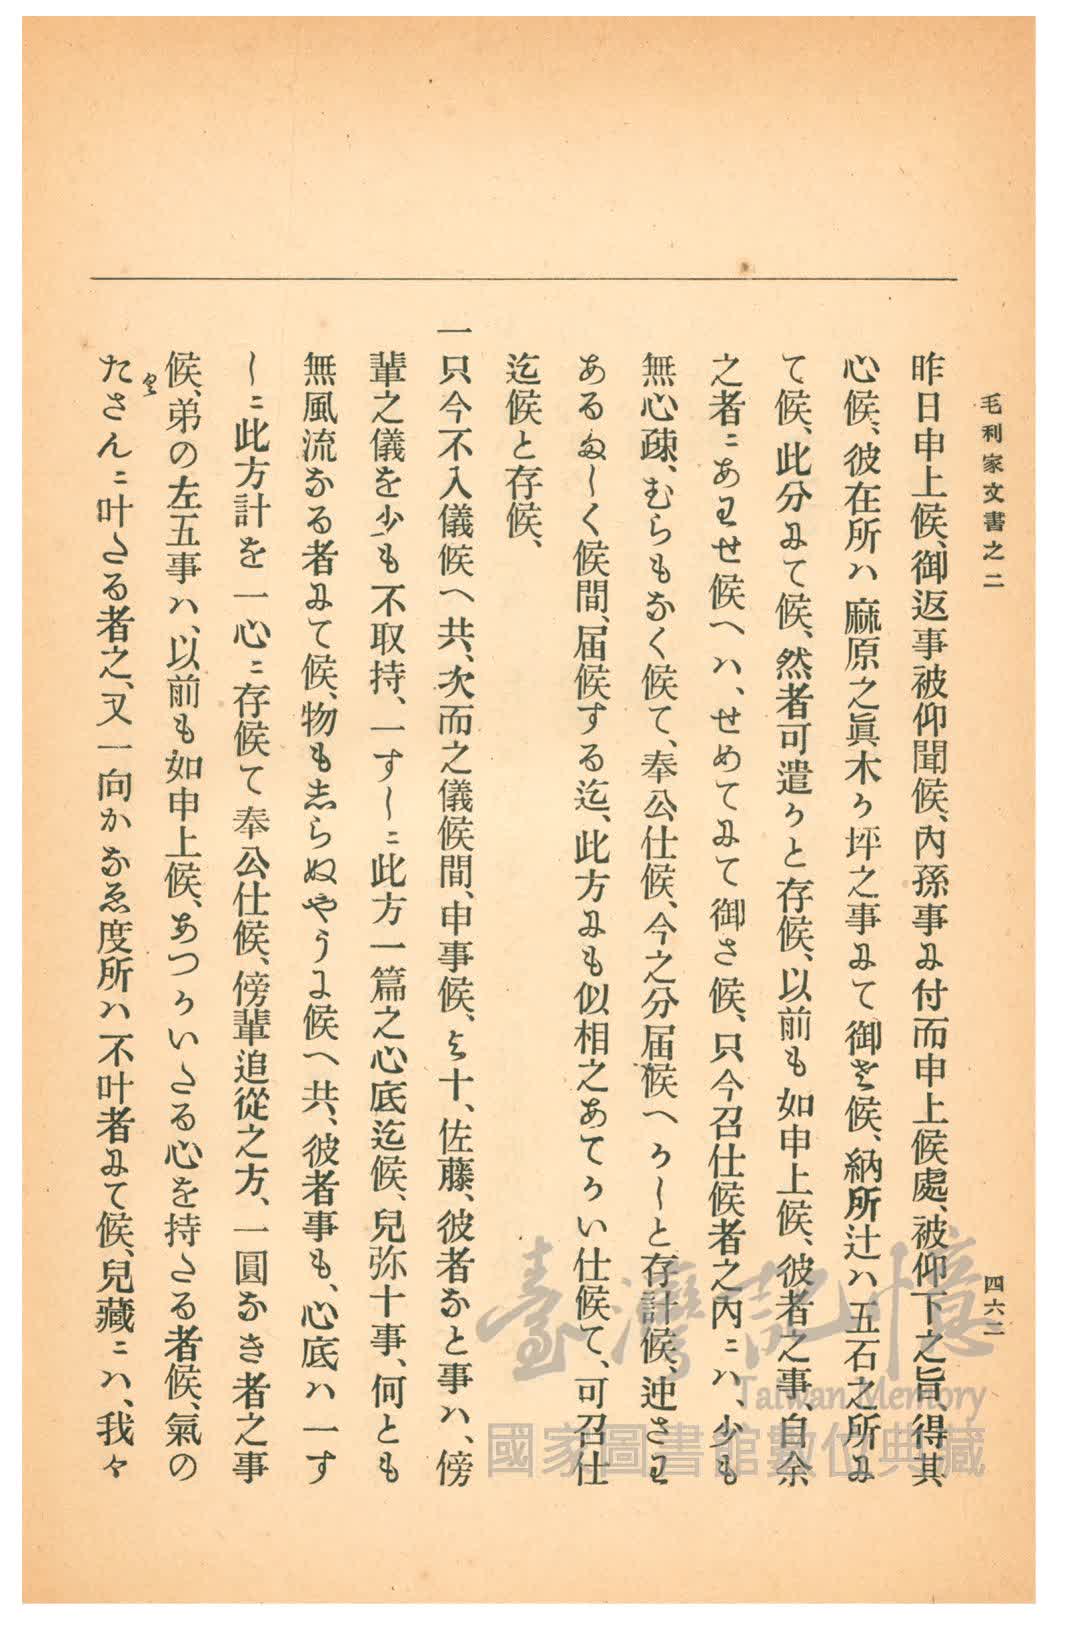 毛利家文書之二
四六二
昨日申上候、御返事被仰聞候、內孫事ニ付而申上候處、被仰下之旨、得其
心候、彼在所ハ麻原之眞木か坪之事ニて御さ候、納所辻ハ五石之所ニ
て候、此分ニて候、然者可遣かと存候、以前も如申上候、彼者之事、自余
之者ニあわせ候へハ、せめてニて御さ候、只今召仕候者之內ニハ、少も
無心疎、むらもなく候て、奉公仕候、今之分届候へかしと存計候、迚さわ
あるましく候間、届候する迄、此方ニも似相之あてかい仕候て、可召仕
迄候と存候、
一只今不入儀候へ共、次而之儀候間、申事候、与十、佐藤、彼者なと事ハ、傍
輩之儀を少も不取持、一すしニ此方一篇之心底迄候、兒弥十事、何とも
無風流なる者ニて候、物も志らぬやうニ候へ共、彼者事も、心底ハ一す
しニ此方計を一心ニ存候て奉公仕候、傍輩追從之方、一圓なき者之事
候、弟の左五事ハ、以前も如申上候、あつかいたる心を持たる者候、氣の
たさんニ叶たる者之、又一向かなゑ度所ハ不叶者ニて候、兒藏ニハ、我々
臺灣記憶
Taiwan Memory
國家圖書館數位典藏